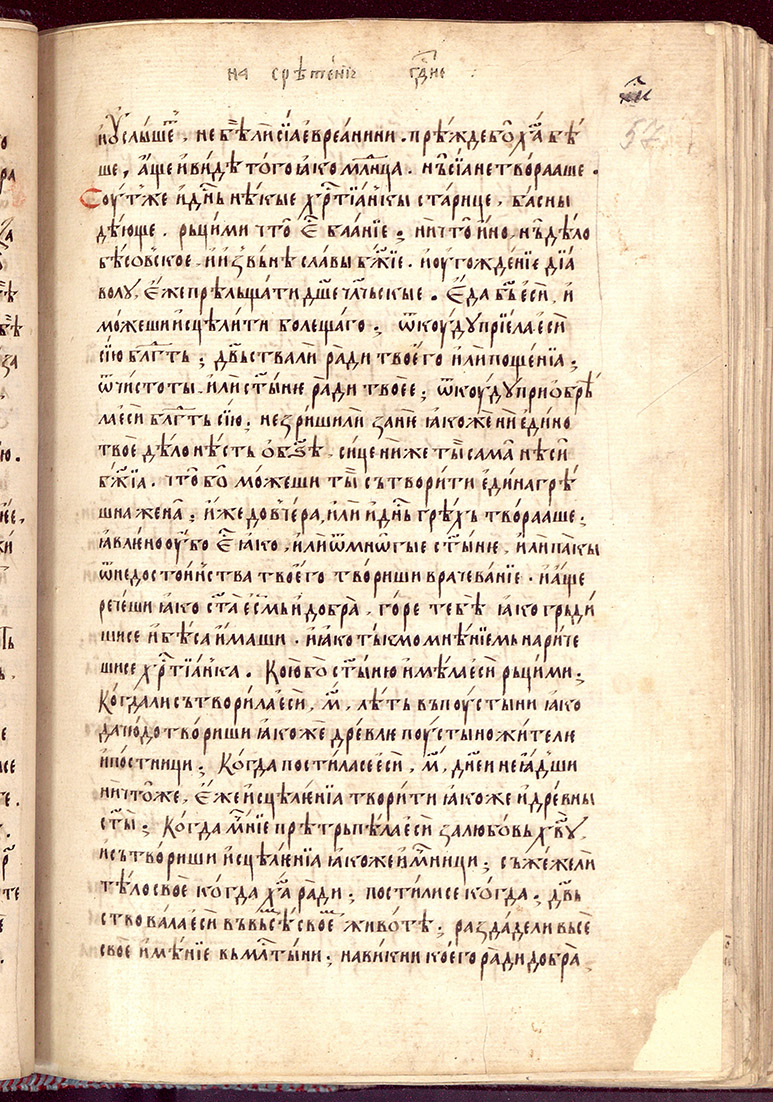 на срѣтенїе гⷭ҇не
57
и҆ услыше, не бѣ ли сїа евреанини. прѣжде бо х҃а бѣ
ше, а҆ще и҆ видѣ того ꙗко мл҃нца. нь сїа не твораше.
Соуть же и҆ дн҃ь нѣкые хрⷭ҇тїанкы старице, басны
дѣюще. рьци ми что є҆ баанїе; ничто и҆но, нь дѣло
бѣсовское. и҆ и҆звьнѣ славы бж҃їе. и҆ оугожденїе дїа
волу, є҆же прѣльщати дш҃е чл҃чьскые. Єда бъ еси, и҆
можеши и҆сцѣлити болещаго; ѿкоуду прїела еси
сїю блгⷣть; двьства ли ради твоего и҆ли пощенїа;
ѿ чистоты. и҆ли ст҃ыню ради твоее; ѿкоуду приѡбрѣ
ла еси блгⷣть сїю; не зриши ли зане ꙗкоже ни едино
твое дѣло нѣсть ѡбьщѣ. сице ниже ты сама нѣси
бж҃їа. что бо можеши ты сътворити едина грѣ
шна жена; и҆же до вчера, и҆ли и҆ дн҃ь грѣхъ твораше;
ꙗвлено оубо є҆ ꙗко, и҆ли ѿ мнѡгые ст҃ыню, и҆ли пакы
ѿ недостоинства твоего твориши врачеванїе. и҆ а҆ще
речеши ꙗко ст҃а есмь и҆ добра, горе тебѣ ꙗко грьди
ши се и҆ бѣса и҆маши. и҆ ꙗко тькмо мнѣнїемь нариче
ши се хрⷭ҇тїанка. Кою бо ст҃ыню и҆мѣла еси рьци ми;
Когда ли сътворила еси, м҃, лѣть въ поустыни ꙗко
да чюдотвориши ꙗкоже древлѥ поустыножителѥ
и҆ постници; Когда постила се еси, м҃, дн҃еи не ꙗдьши
ничтоже, є҆же и҆сцѣленїа творити ꙗкоже и҆ древны
ст҃ы; Когда мч҃нїе прѣтрьпѣла еси за любовь хв҃у,
и҆ сътвориши и҆сцѣленїа ꙗкоже и҆ мч҃ници; съжеже ли
тѣло свое когда х҃а ради; пости ли се когда; двь
ствовала еси въ вьсѣ своѥ животѣ; раздаде ли вьсе
свое и҆мѣнїе вь млⷭ҇тыни; навикни коего ради добра